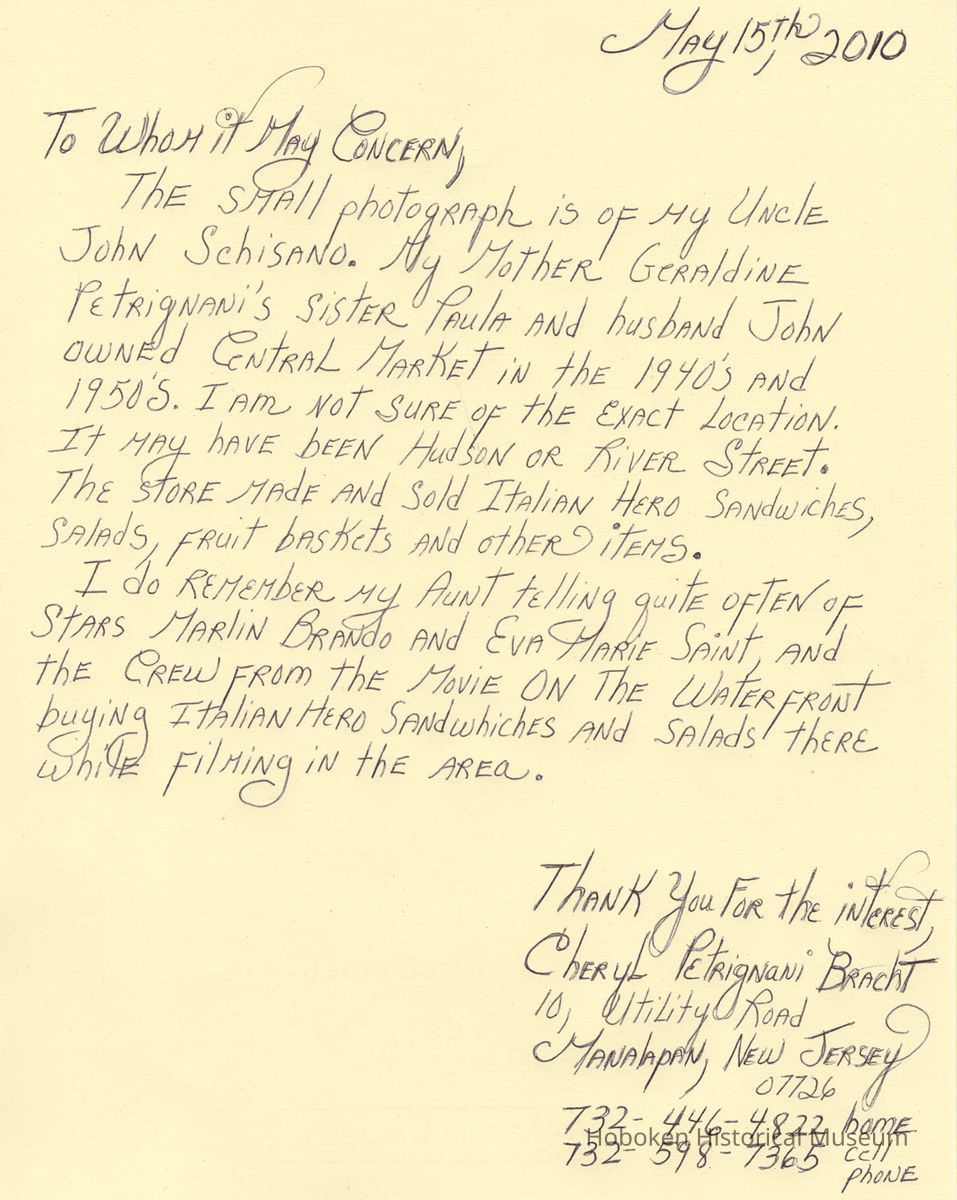 May 15th, 2010
To Whom it May Concern,
The small photograph is of my Uncle
John Schisano. My Mother Geraldine
Petrignani's sister Paula and husband John
owned Central Market in the 1940's and
1950's. I am not sure of the exact location.
It may have been Hudson or River Street.
The store made and sold Italian Hero Sandwiches,
salads, fruit baskets and other items.
I do remember my Aunt telling quite often of
Stars Marlin Brando and Eva Marie Saint, and
the Crew from the Movie On The Waterfront
buying Italian Hero Sandwhiches and salads there
while filming in the area.
Thank You For the interest,
Cheryl Petrignani Bracht
10, Utility Road
Manalapan, New Jersey
07726
732-446-4822 home
Hoboken Historical Museum
732-598-7365 cell
phone